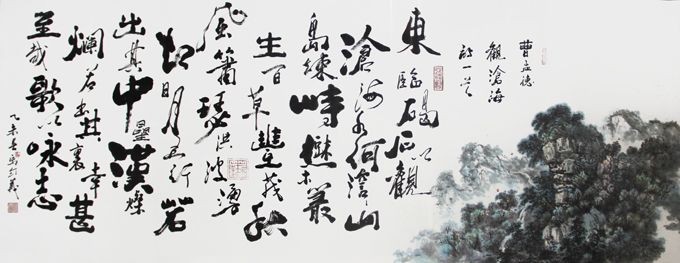 曹孟德
觀滄海
詩一首
東臨碣石以觀
滄海水何澹山
島竦峙樹木叢
生百草豐茂秋
風蕭瑟洪波湧
起日月之行若
出其中星漢燦
爛若出其裏幸甚
至哉歌以咏志
乙未